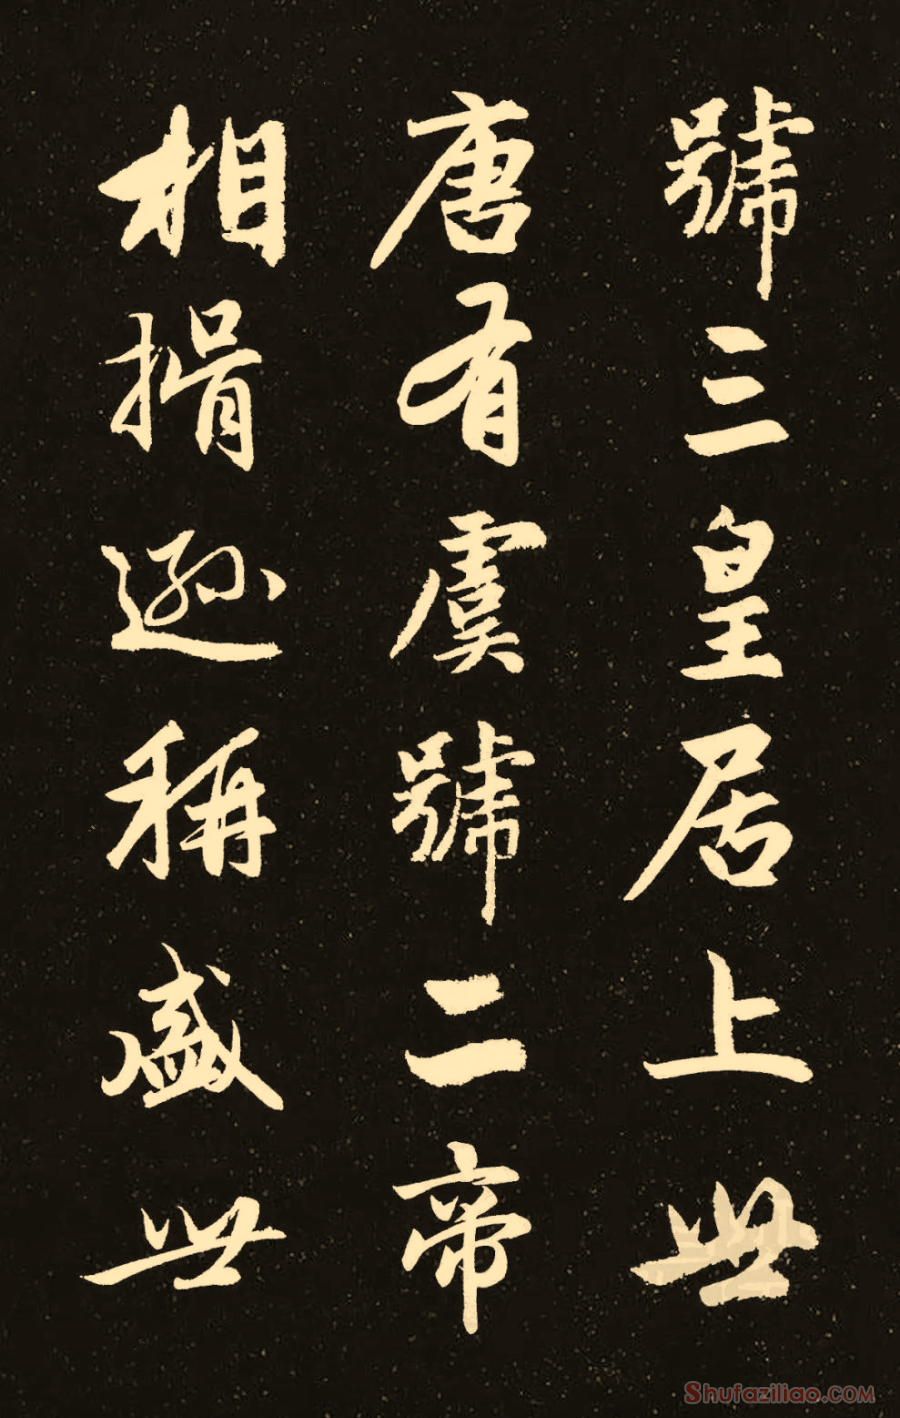 號三皇居上世
唐有虞號二帝
相揖遜稱盛世
Shufaziliao.com